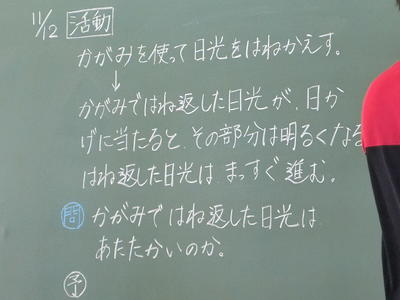 11/12 活動
かがみを使って日光をはねかえす。
↓
かがみではね返した日光が、日か
げに当たると、その部分は明るくなる
はね返した日光は、まっすぐ進む。
問 かがみではね返した日光は
あたたかいのか。
予